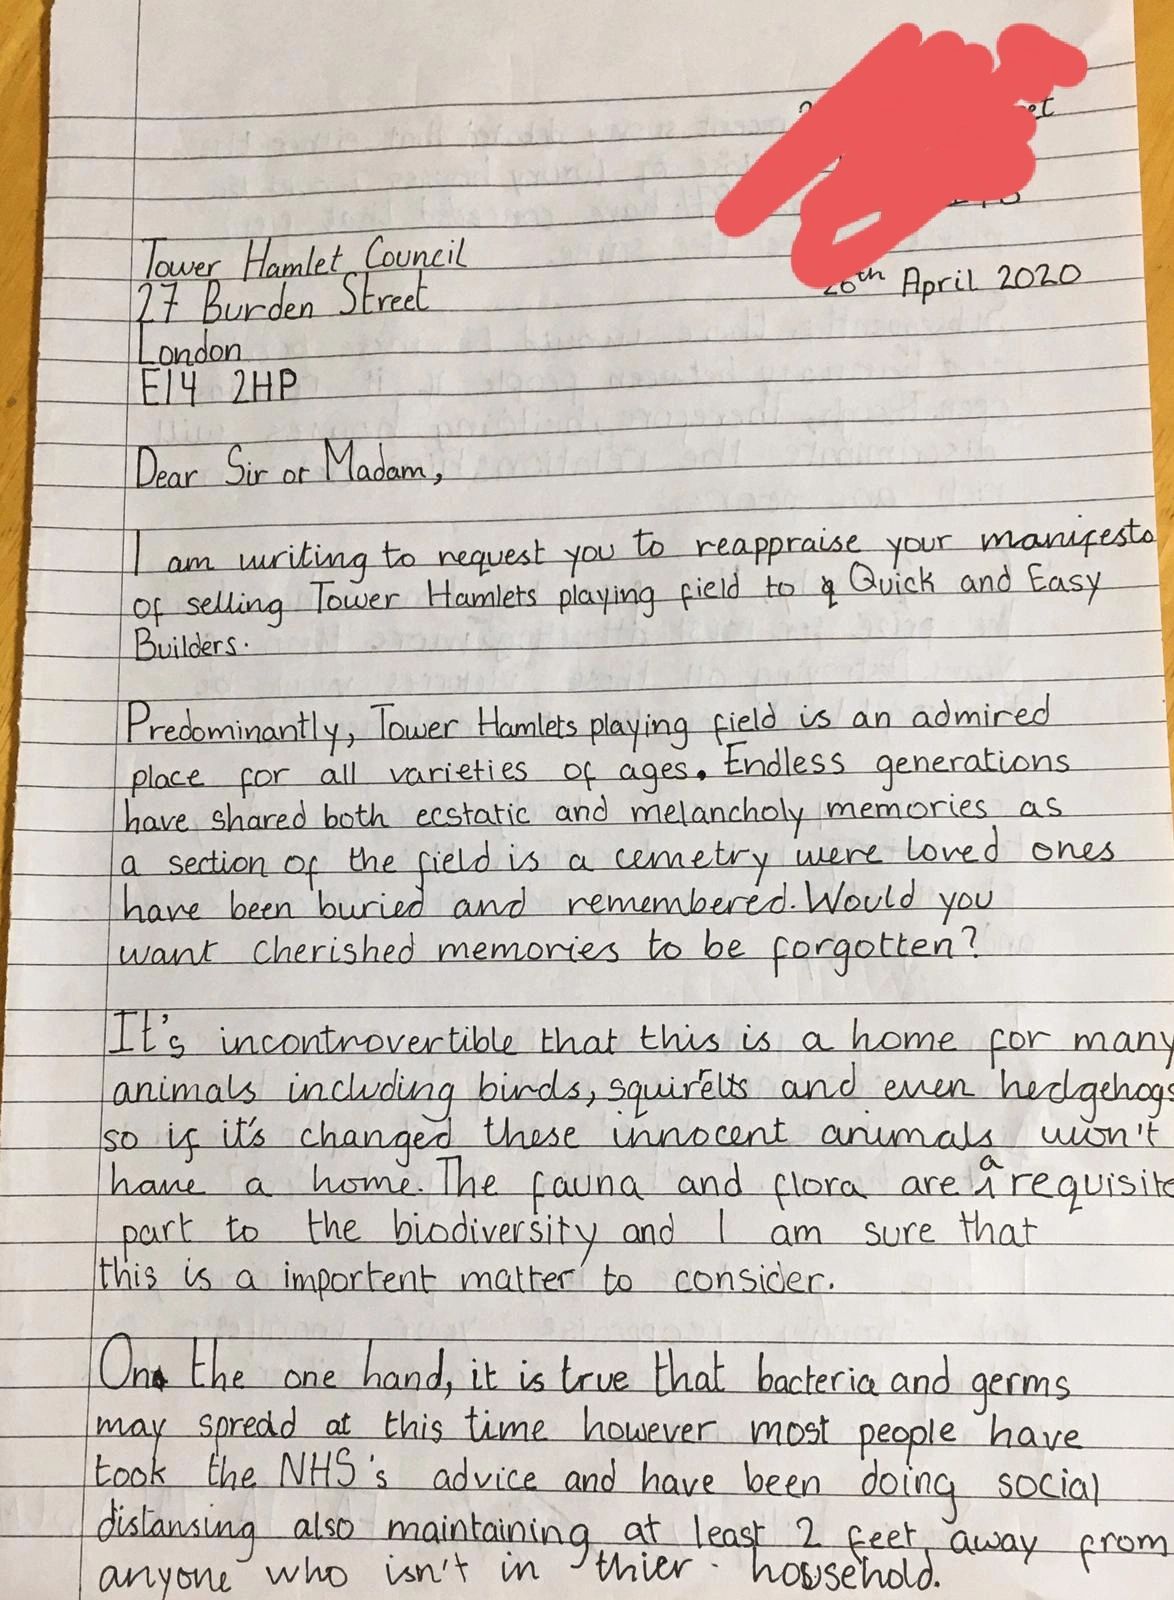 th April 2020
Tower Hamlet Council
27 Burden Street
London
E14 2HP
Dear Sir or Madam,
I am writing to request you to reappraise your manifesto
of selling Tower Hamlets playing field to Quick and Easy
Builders.
Predominantly, Tower Hamlets playing field is an admired
place for all varieties of ages. Endless generations
have shared both ecstatic and melancholy memories as
a section of the field is a cemetry were loved ones
have been buried and remembered. Would you
want cherished memories to be forgotten?
It's incontrovertible that this is a home for many
animals including birds, squirells and even hedgehogs
so if it's changed these innocent animals won't
have a home. The fauna and flora are a requisite
part to the biodiversity and I am sure that
this is a importent matter to consider.
On the one hand, it is true that bacteria and germs
may spread at this time however most people have
took the NHS's advice and have been doing social
distansing also maintaining at least 2 feet away from
anyone who isn't in thier household.